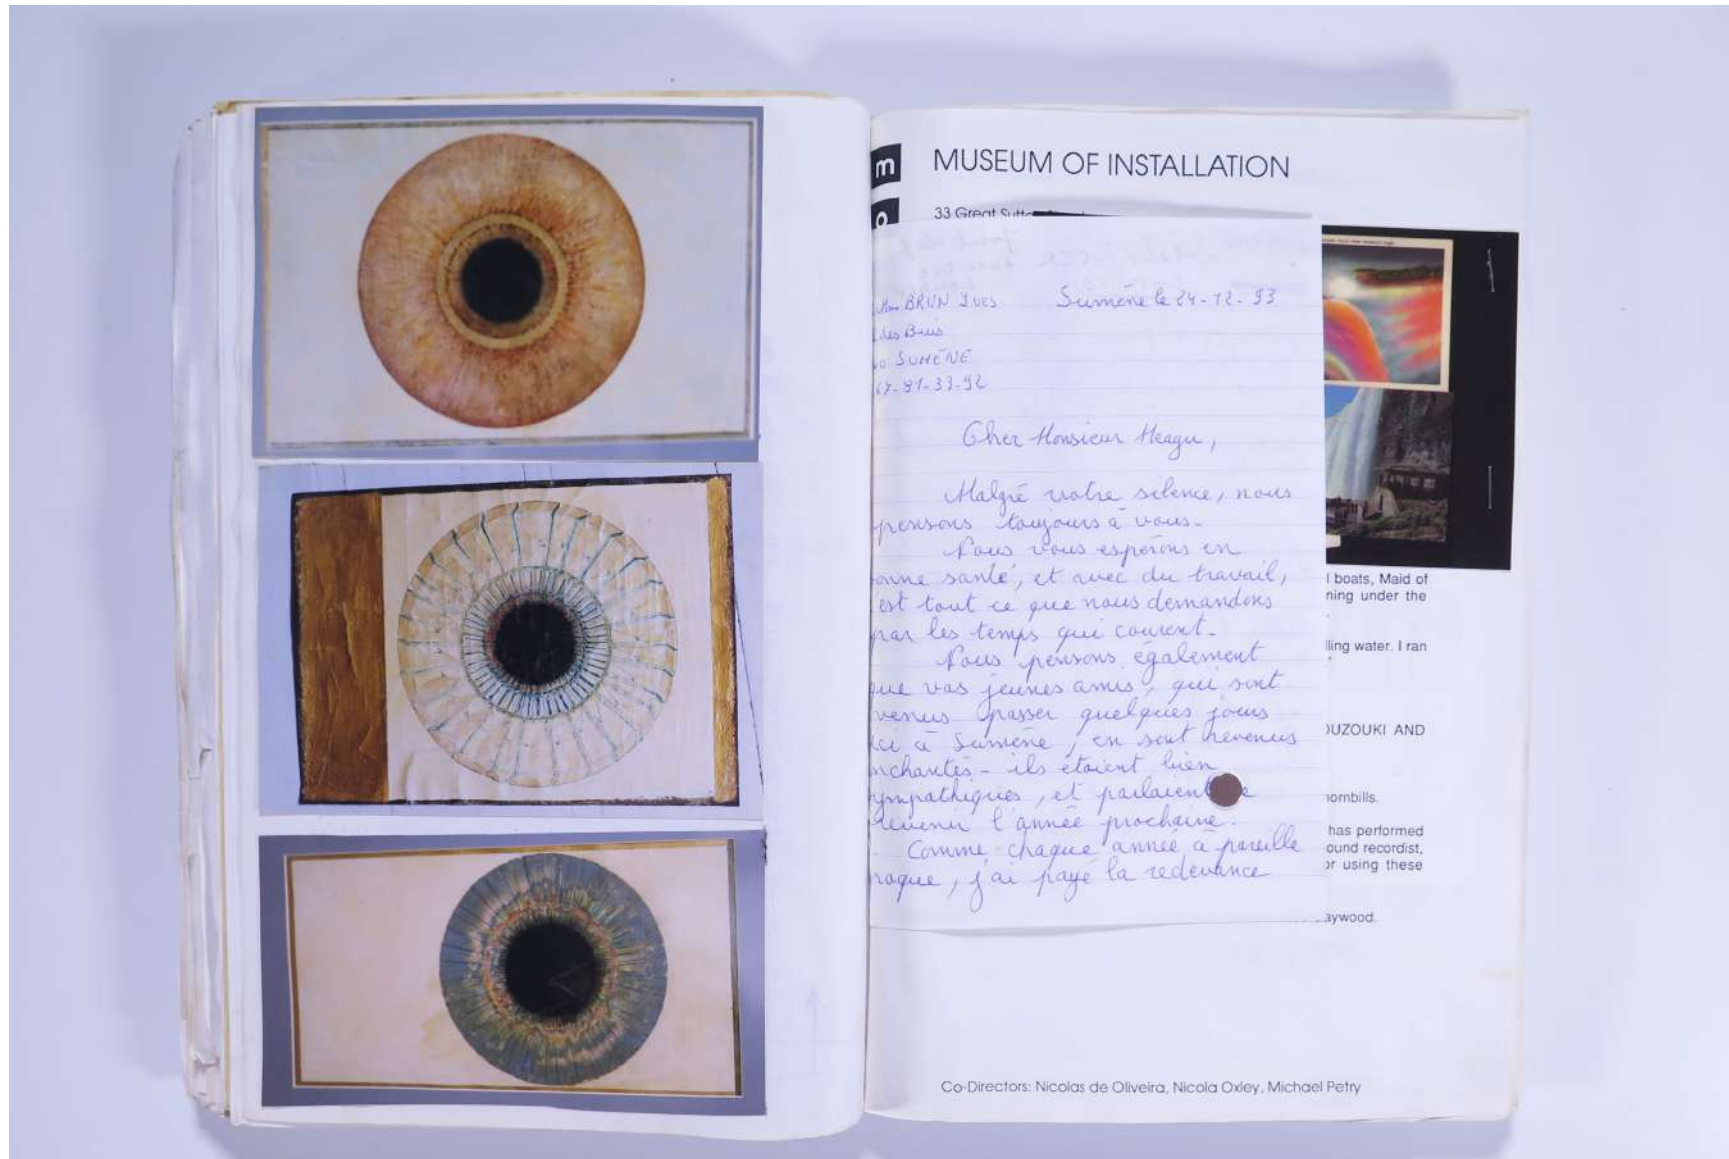 m
o
MUSEUM OF INSTALLATION
33 Great Sutt
BRUN YVES
Sumène le 24-12-93
des Buis
SUMÈNE
67-81-33-92
Cher Monsieur Heagu,
Malgré votre silence, nous
pensons toujours à vous.
Nous vous espérons en
onne santé, et avec du travail,
est tout ce que nous demandons
par les temps qui courent.
Nous pensons également
que vos jeunes amis, qui sont
venus passer quelques jours
ici à Sumène, en sont revenus
nchantés - ils étaient bien
ympathiques, et parlaient e
revenir l'année prochaine.
Comme chaque année à pareille
poque, j'ai payé la redevance
l boats, Maid of
ning under the
ling water. I ran
OUZOUKI AND
hornbills.
has performed
ound recordist,
or using these
aywood.
Co-Directors: Nicolas de Oliveira, Nicola Oxley, Michael Petry